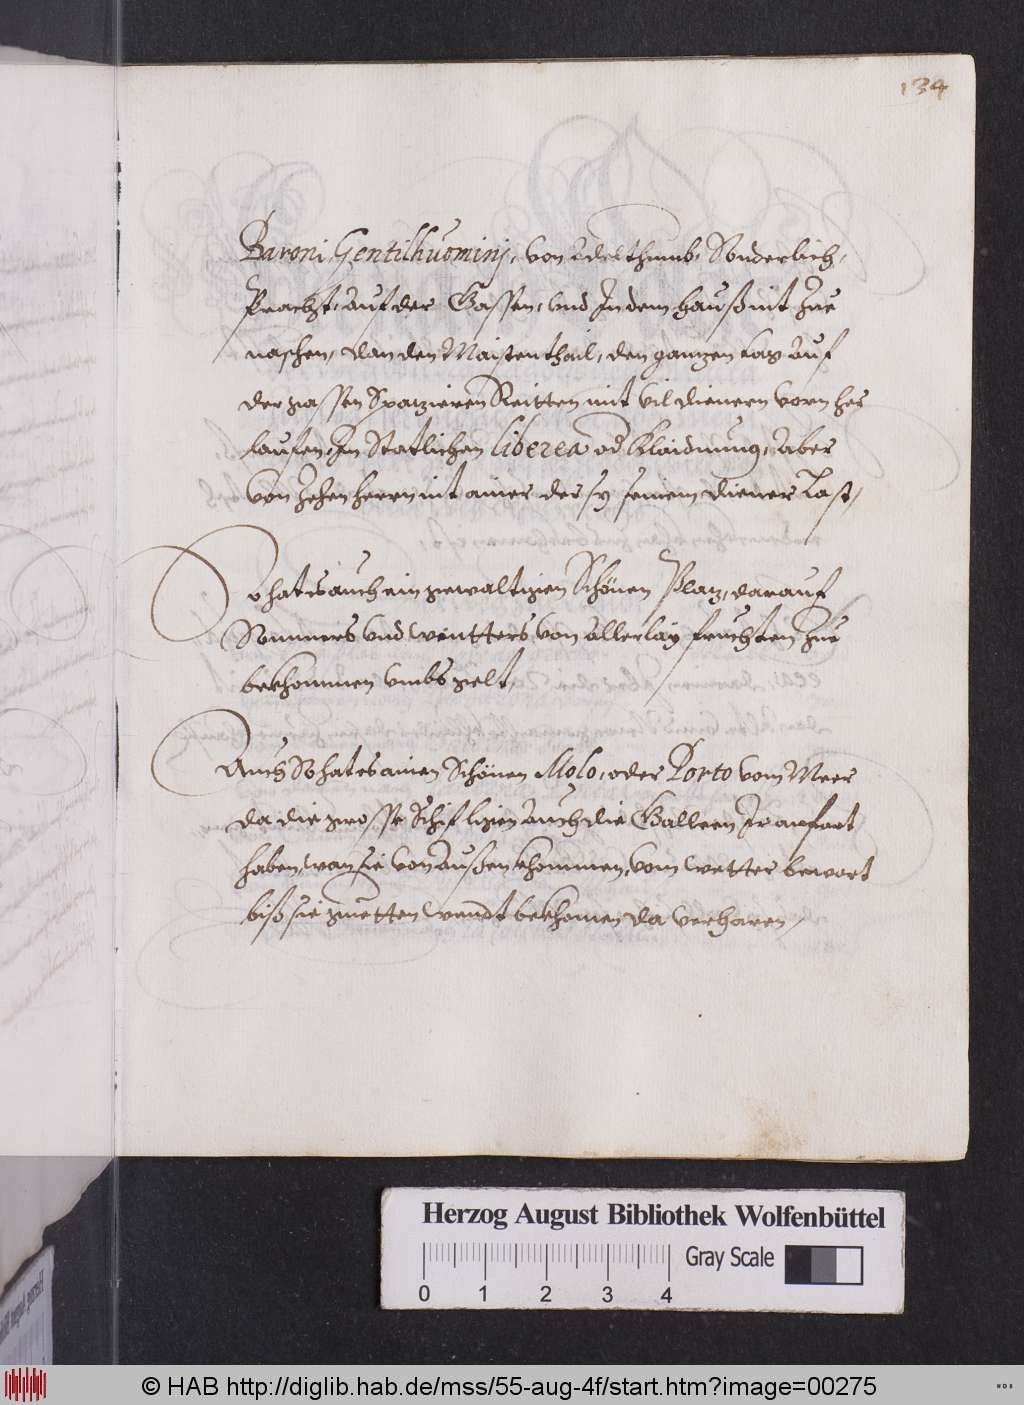 134
Baroni, Gentilhuominj, von Adelthumb, Sonderlich,
Pracht, auf der Gassen, vnd In dem hauß nit Zue
naschen, dan den Maisten thail, den ganzen tag auf
der gassen Spazieren Reitten mit vil dienern vorn her
lauffen, In Statlichen liberea od Klaidnung, Aber
von Zehen herrn nit ainer der sy seinem diener Last,
So hat es auch ein gewaltigen Schönen Plaz, darauf
Sommers vnd wintters von allerlay fruchten Zue
bekhommen vmbs gelt,
Auch So hat es ainen Schönen Molo, oder Porto vom Meer
da die grosse Schif ligen auch die Galleen Ir anfart
haben, wan sie von Außen khommen, vom wetter bewart
biß sie guetten wendt bekhomen da verharen,
Herzog August Bibliothek Wolfenbüttel
Gray Scale
0 1 2 3 4
© HAB http://diglib.hab.de/mss/55-aug-4f/start.htm?image=00275